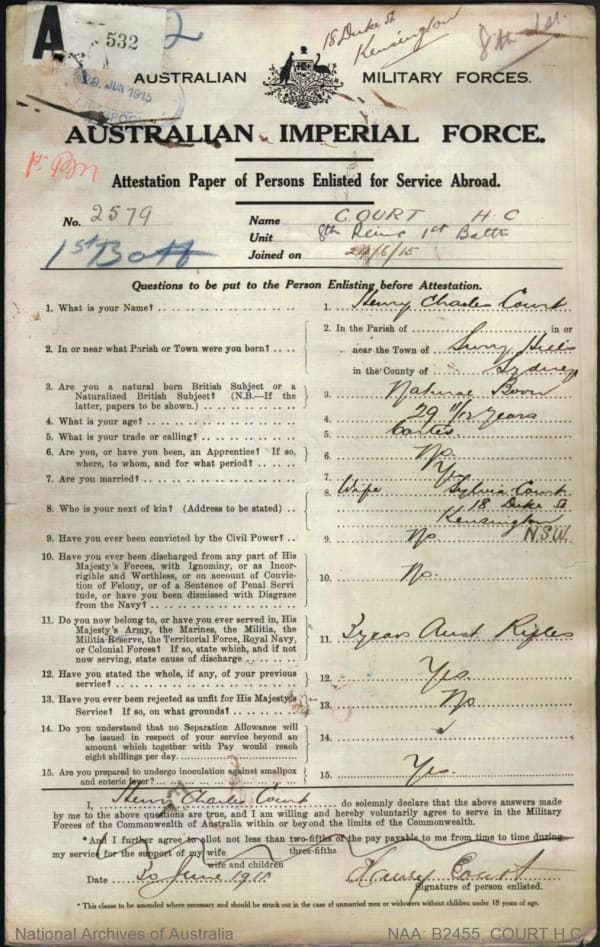 A 532 2
18 Duke St
Kensington
8th 1st.
29 JUN 1915
AUSTRALIAN MILITARY FORCES.
AUSTRALIAN IMPERIAL FORCE.
Attestation Paper of Persons Enlisted for Service Abroad.
No. 2579 Name COURT H C
1st Batt Unit 8th Reins 1st Battn
Joined on 24/6/15
Questions to be put to the Person Enlisting before Attestation.
1. What is your Name? 1. Henry Charles Court
2. In or near what Parish or Town were you born? 2. In the Parish of in or
near the Town of Surry Hills
in the County of Sydney
3. Are you a natural born British Subject or a
Naturalized British Subject? (N.B.—If the
latter, papers to be shown.) 3. Natural Born
4. What is your age? 4. 29 11/12 years
5. What is your trade or calling? 5. Carter
6. Are you, or have you been, an Apprentice? If so,
where, to whom, and for what period? 6. No.
7. Are you married? 7. Yes
8. Who is your next of kin? (Address to be stated) 8. Wife Sylvia Court
18 Duke St
Kensington
N.S.W.
9. Have you ever been convicted by the Civil Power? 9. No
10. Have you ever been discharged from any part of His
Majesty's Forces, with Ignominy, or as Incor-
rigible and Worthless, or on account of Convic-
tion of Felony, or of a Sentence of Penal Servi
tude, or have you been dismissed with Disgrace
from the Navy? 10. No.
11. Do you now belong to, or have you ever served in, His
Majesty's Army, the Marines, the Militia, the
Militia Reserve, the Territorial Force, Royal Navy,
or Colonial Forces? If so, state which, and if not
now serving, state cause of discharge 11. 3 years Aust Rifles
12. Have you stated the whole, if any, of your previous
service? 12. Yes.
13. Have you ever been rejected as unfit for His Majesty's
Service? If so, on what grounds? 13. No
14. Do you understand that no Separation Allowance will
be issued in respect of your service beyond an
amount which together with Pay would reach
eight shillings per day. 14. ✓
15. Are you prepared to undergo inoculation against smallpox
and enteric fever? 15. Yes.
I, Henry Charles Court do solemnly declare that the above answers made
by me to the above questions are true, and I am willing and hereby voluntarily agree to serve in the Military
Forces of the Commonwealth of Australia within or beyond the limits of the Commonwealth.
*And I further agree to allot not less than two-fifths of the pay payable to me from time to time during
three-fifths
my service for the support of my wife
wife and children
Date 30 June 1915 Henry Court
Signature of person enlisted.
* This clause to be amended where necessary and should be struck out in the case of unmarried men or widowers without children under 18 years of age.
National Archives of Australia NAA: B2455, COURT H C